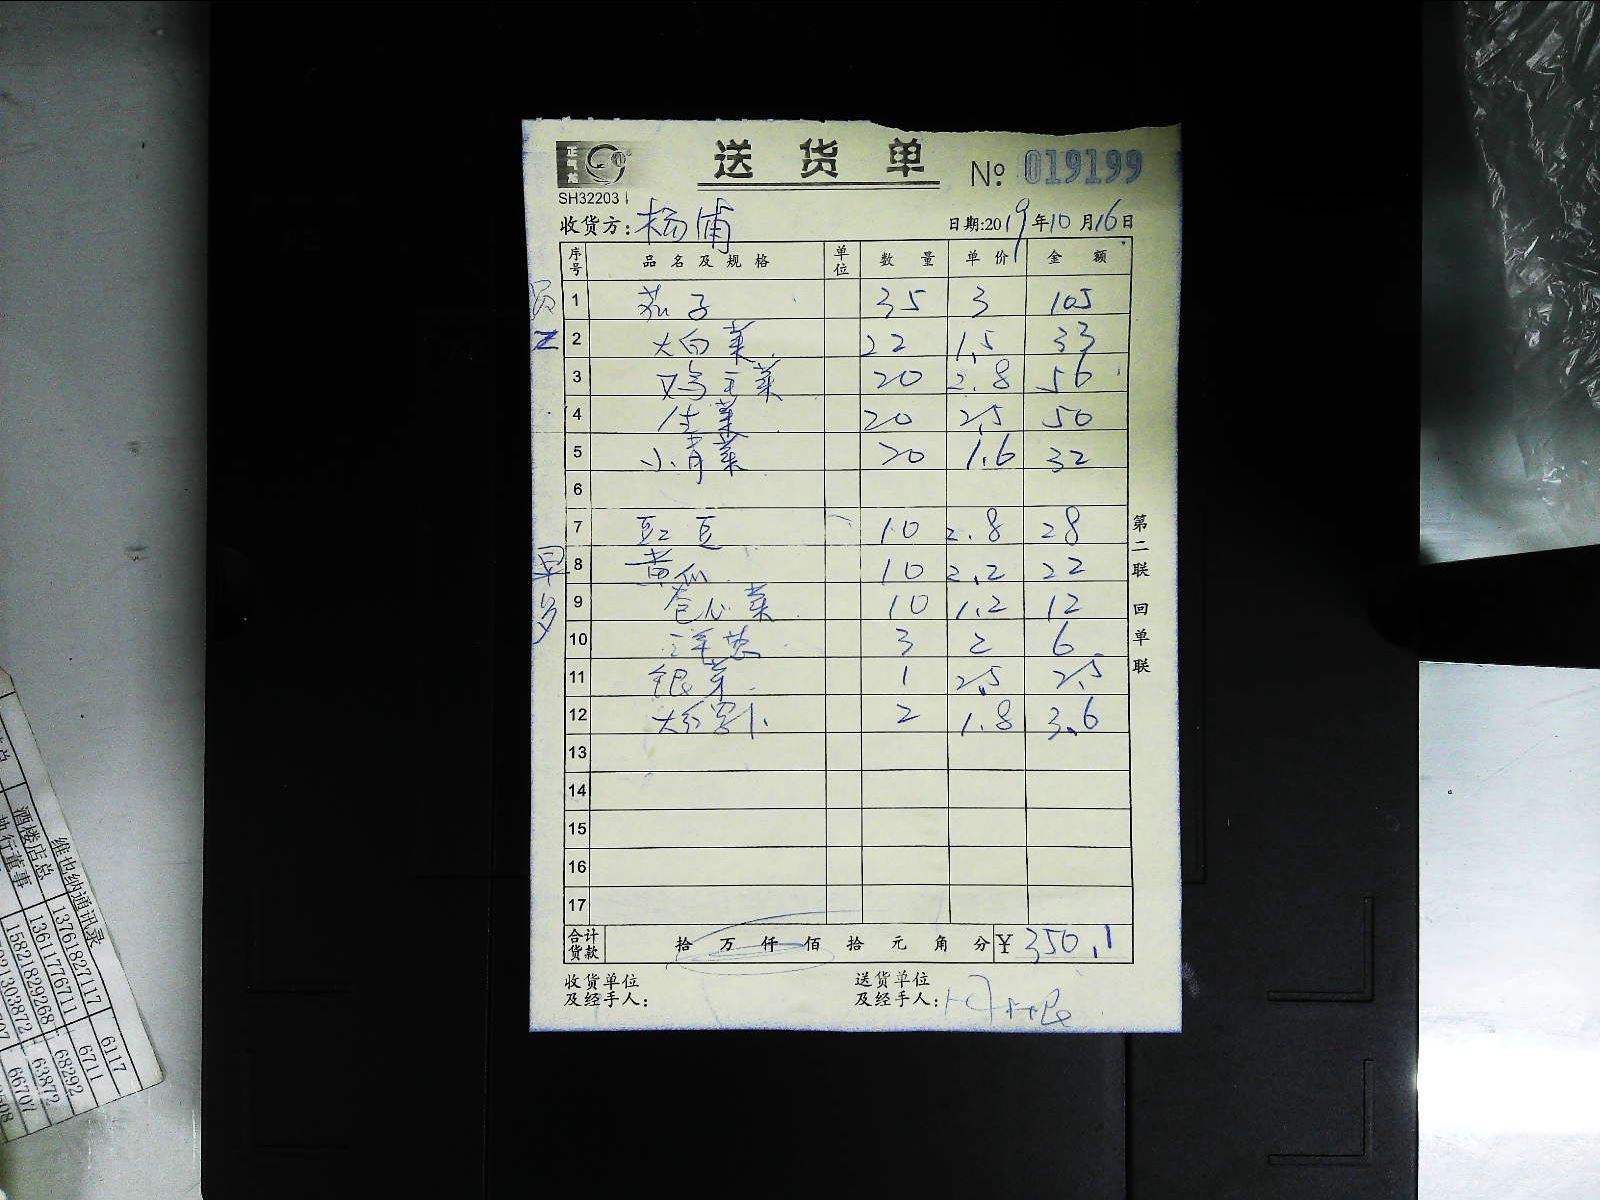 正气龙
送 货 单
№ 019199
SH32203
收货方: 杨浦
日期:2019年10月16日
序号 品名及规格 单位 数量 单价 金额
员工
1 茄子 35 3 105
2 大白菜 22 1.5 33
3 鸡毛菜 20 2.8 56
4 生菜 20 2.5 50
5 小青菜 20 1.6 32
6
7 豇豆 10 2.8 28
早
8 黄瓜 10 2.2 22
9 卷心菜 10 1.2 12
10 洋葱 3 2 6
11 银芽 1 2.5 2.5
12 大红萝卜 2 1.8 3.6
13
14
15
16
17
合计货款 拾 万 仟 佰 拾 元 角 分 ¥ 350.1
收货单位
及经手人:
送货单位
及经手人:
第二联 回单联
维也纳通讯录
酒楼店总 13761827117 6117
执行董事 13611776711 6711
15821829268 68292
63872
66707